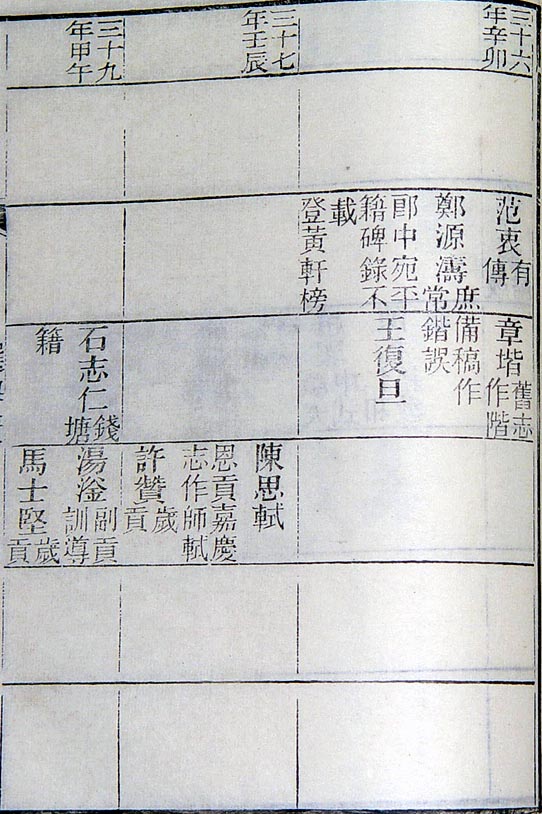 三十六
年辛卯
范衷有
傳
鄭源濤庶
常
郎中宛平
籍碑錄不
載
登黃軒榜
章堦舊志
作階
備稿作
鍇誤
王復旦
三十七
年壬辰
陳思軾
恩貢嘉慶
志作師軾
許贊歲
貢
三十九
年甲午
石志仁錢
塘
籍
湯滏副貢
訓導
馬士堅歲
貢